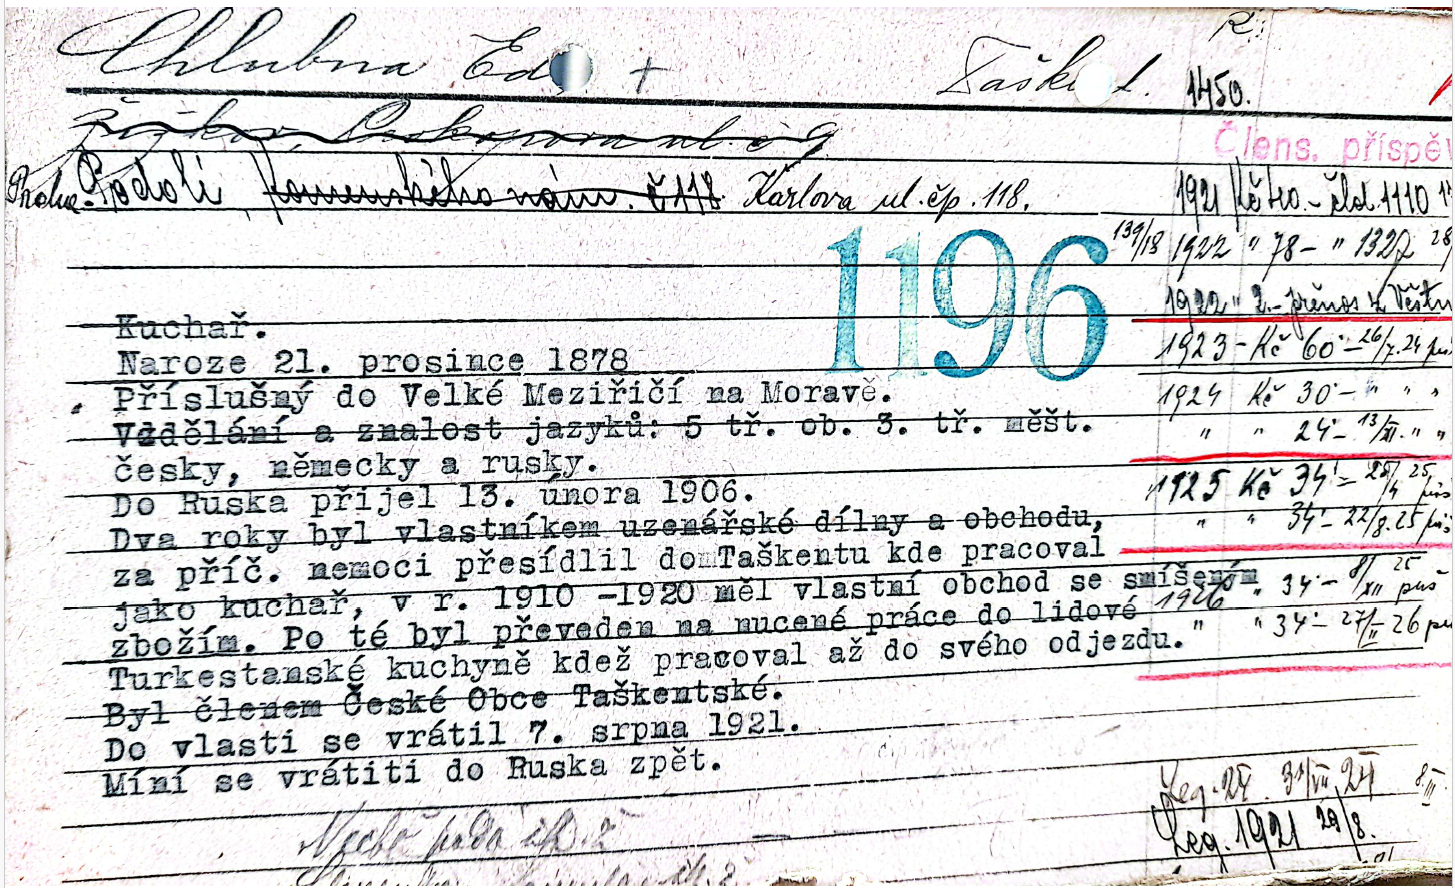 Chlubna Ed +
R.
1450.
Žižkov, Prokopova ul. č. 9
Člens. příspěv
Praha-Podolí Komenského nám. č 118 Karlova ul. čp. 118.
1921 Kč 40.- čld. 1110
139/18 1922 " 78- " 1327 28
1196
1922 " 2.- přenos z Věstn
Kuchař.
1923 - Kč 60'- 26/7.24
Naroze 21. prosince 1878
Příslušný do Velké Meziříčí na Moravě.
1924 Kč 30'- " " "
Vzdělání a znalost jazyků: 5 tř. ob. 3. tř. měšt.
" " 24'- 13/XII. " "
česky, německy a rusky.
1925 Kč 34'- 25/4 25
Do Ruska přijel 13. února 1906.
" " 34'- 22/8.25
Dva roky byl vlastníkem uzenářské dílny a obchodu,
za příč. nemoci přesídlil do Taškentu kde pracoval
" 34'- 8/XII 25 puš
jako kuchař, v r. 1910 -1920 měl vlastní obchod se smíšeným
1926
zbožím. Po té byl převeden na nucené práce do lidové
" " 34'- 27/II- 26
Turkestanské kuchyně kdež pracoval až do svého odjezdu.
Byl členem České Obce Taškentské.
Do vlasti se vrátil 7. srpna 1921.
Míní se vrátiti do Ruska zpět.
Leg. 24
Leg. 1921 29/8.